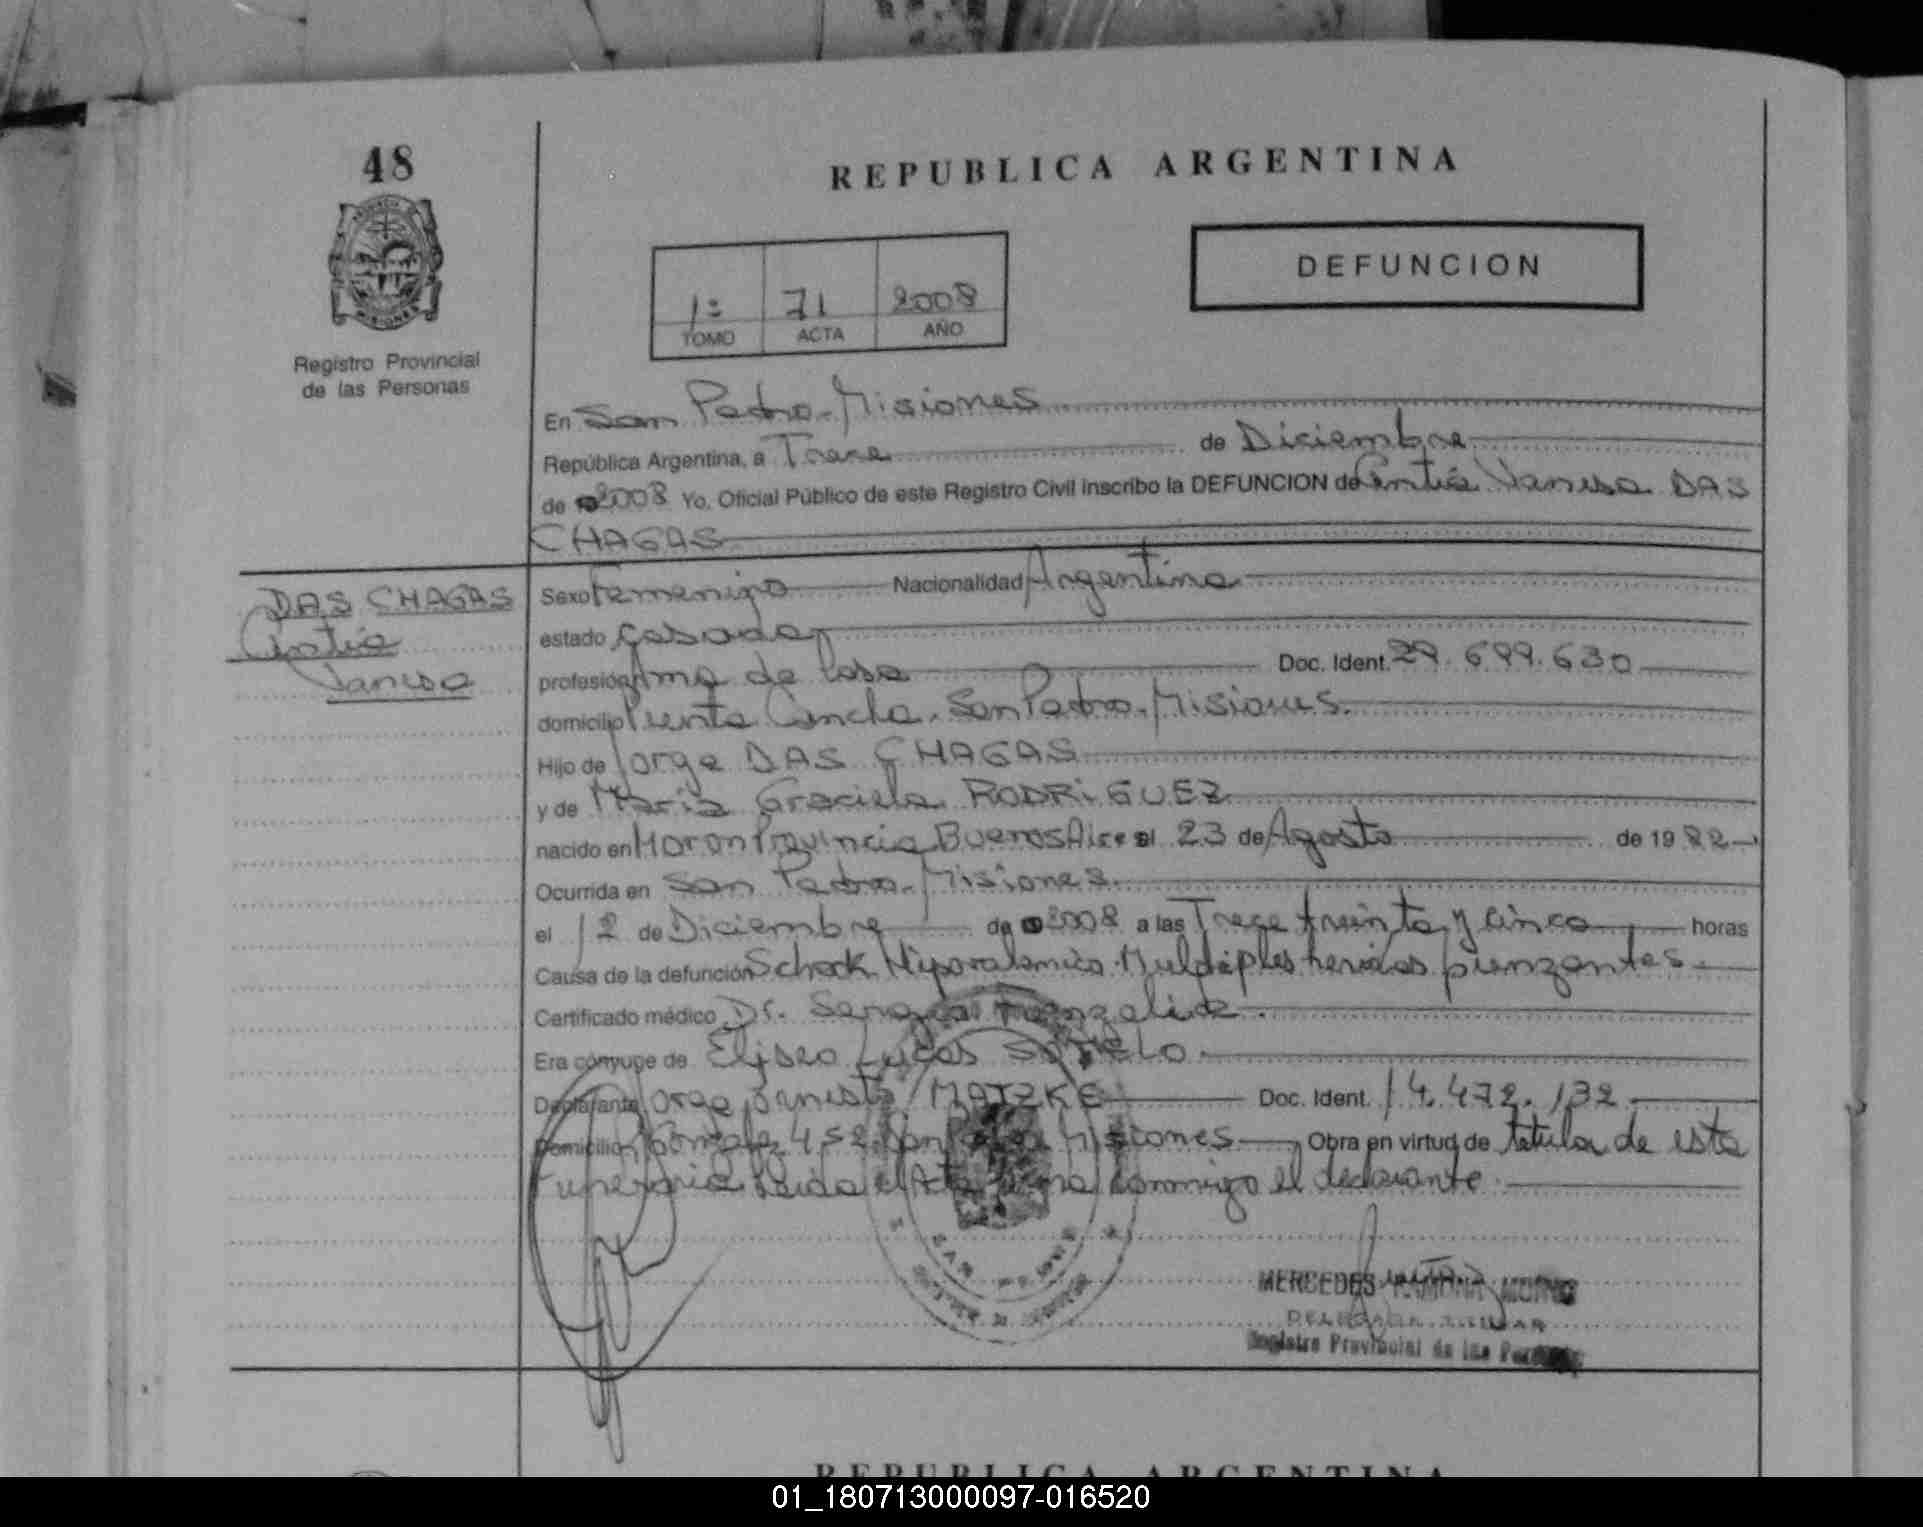 48
REPUBLICA ARGENTINA
DEFUNCION
1º 71 2008
TOMO ACTA AÑO
Registro Provincial
de las Personas
En San Pedro-Misiones
República Argentina, a Trece de Diciembre
de 2008 Yo, Oficial Público de este Registro Civil inscribo la DEFUNCION de Cintia Vanesa DAS
CHAGAS
DAS CHAGAS
Cintia
Vanesa
Sexo Femenino Nacionalidad Argentina
estado casada
profesión Ama de Casa Doc. Ident. 29.699.630
domicilio Puente Cancha. San Pedro. Misiones.
Hijo de Jorge DAS CHAGAS
y de Maria Graciela RODRIGUEZ
nacido en Moron Provincia Buenos Aires el 23 de Agosto de 1982
Ocurrida en San Pedro-Misiones.
el 12 de Diciembre de 2008 a las Trece treinta y cinco horas
Causa de la defunción Schock Hipovolemico. Multiples heridas punzantes.
Certificado médico Dr.
Era cónyuge de Eliseo Lucas SOTELO.
Declarante Jorge Ernesto MATZKE Doc. Ident. 14.472.132
Domicilio 452 San Pedro Misiones Obra en virtud de titular de esta
Funeraria Leida el Acta firma conmigo el declarante
SAN PEDRO
MERCEDES RAMONA
DELEGADA TITULAR
Registro Provincial de las Personas
REPUBLICA ARGENTINA
01_180713000097-016520